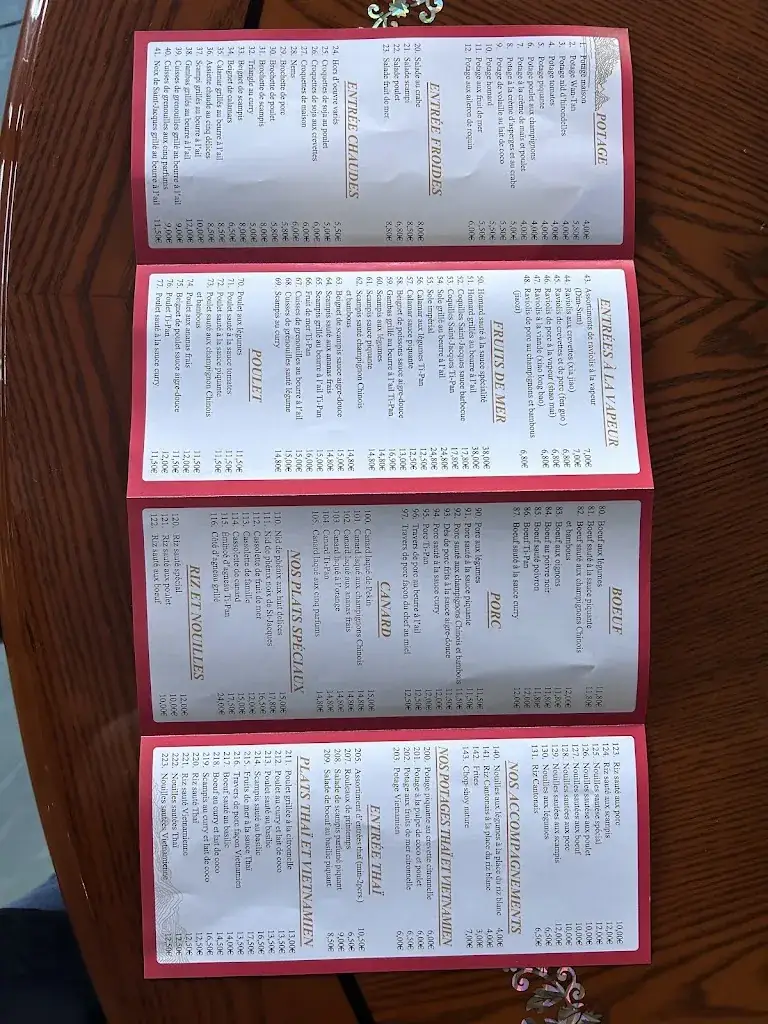 POTAGE
1. Potage maison 4,00€
2. Potage Wan-Tan 5,50€
3. Potage nid d'hirondelles 4,00€
4. Potage tomates 4,00€
5. Potage piquante 4,00€
6. Potage poulet aux champignons 4,00€
7. Potage à la crème de maïs et poulet 4,00€
8. Potage à la crème d'asperges et au crabe 5,00€
9. Potage de volaille au lait de coco 5,00€
10. Potage homard 5,50€
11. Potage aux fruit de mer 5,50€
12. Potage aux aileron de requin 6,00€
ENTRÉE FROIDES
20. Salade au crabe 8,00€
21. Salade scampi 8,50€
22. Salade poulet 6,80€
23. Salade fruit de mer 8,80€
ENTRÉE CHAUDES
24. Hors d'oeuvre variés 5,50€
25. Croquettes de soja au poulet 5,00€
26. Croquettes de soja aux crevettes 6,00€
27. Croquettes de maison 6,00€
28. Nems 6,00€
29. Brochette de porc 5,80€
30. Brochette de poulet 5,80€
31. Brochette de scampis 8,00€
32. Triangle au curry 5,00€
33. Beignet de scampis 8,00€
34. Beignet de calamars 6,50€
35. Calamar grillés au beurre à l'ail 8,50€
36. Assiette chaude au cinq délices 8,50€
37. Scampi grillés au beurre à l'ail 10,00€
38. Gambas grillés au beurre à l'ail 12,00€
39. Cuisses de grenouilles grillé au beurre à l'ail 9,00€
40. Cuisses de grenouilles aux cinq parfums 9,00€
41. Noix de Saint-Jacques grillé au beurre à l'ail 11,50€
ENTRÉES À LA VAPEUR
43. Assortiments de raviolis à la vapeur 7,00€
(Dim-Sum)
44. Raviolis aux crevettes (xia jiao) 6,80€
45. Raviolis de crevettes et de porc (fin guo) 6,80€
46. Raviolis de porc à la vapeur (shao mai) 6,80€
47. Raviolis à la viande (xiao long bao) 6,80€
48. Raviolis de porc au champignons et bambous 6,80€
(jiaozi)
FRUITS DE MER
50. Homard sauté à la sauce spécialité 38,00€
51. Homard grillés au beurre à l'ail 38,00€
52. Coquilles Saint-Jacques sauce barbecue 17,80€
53. Coquilles Saint-Jacques Ti-Pan 17,80€
54. Sole grillé au beurre à l'ail 24,80€
55. Sole impérial 24,80€
56. Calamar aux légumes Ti-Pan 12,50€
57. Calamar sauce piquante 12,50€
58. Beignet de poissons sauce aigre-douce 13,00€
59. Gambas grillé au beurre à l'ail Ti-Pan 16,90€
60. Scampis aux légumes 14,80€
61. Scampis sauce piquante 14,80€
62. Scampis sauté champignon Chinois 14,80€
et bambous
63. Beignet de scampis sauce aigre-douce 15,00€
64. Scampis sauté aux ananas frais 14,80€
65. Scampis grillé au beurre à l'ail Ti-Pan 15,50€
66. Fruit de mer Ti-Pan 16,00€
67. Cuisses de grenouilles au beurre à l'ail 15,00€
68. Cuisses de grenouilles sauté légume 15,00€
69. Scampis au curry 14,80€
POULET
70. Poulet aux légumes 11,50€
71. Poulet sauté à la sauce tomates 11,50€
72. Poulet sauté à la sauce piquante 11,50€
73. Poulet sauté aux champignon Chinois 11,50€
et bambous
74. Poulet aux ananas frais 12,00€
75. Beignet de poulet sauce aigre-douce 11,50€
76. Poulet Ti-Pan 12,00€
77. Poulet sauté à la sauce curry 11,50€
BOEUF
80. Boeuf aux légumes 11,80€
81. Boeuf sauté à la sauce piquante 11,80€
82. Boeuf sauté aux champignons Chinois
et bambous 12,00€
83. Boeuf aux oignons 11,80€
84. Boeuf au poivre noir 11,80€
85. Boeuf sauté poivron 11,80€
86. Boeuf Ti-Pan 12,00€
87. Boeuf sauté à la sauce curry 12,00€
PORC
90. Porc aux légumes 11,50€
91. Porc sauté à la sauce piquante 11,50€
92. Porc sauté aux champignons Chinois et bambous 11,50€
93. Dés de porc frits à la sauce aigre-douce 11,50€
94. Porc sauté à la sauce curry 12,00€
95. Porc Ti-Pan 12,00€
96. Travers de porc au beurre à l'ail 12,50€
97. Travers de porc façon du chef au miel 12,50€
CANARD
100. Canard laqué de Pékin 15,00€
101. Canard laqué aux champignons Chinois 14,80€
102. Canard laqué aux ananas frais 14,80€
103. Canard laqué à l'orange 14,80€
104. Canard Ti-Pan 14,80€
105. Canard laqué aux cinq parfums 14,80€
NOS PLATS SPÉCIAUX
110. Nid de phénix aux huit délices 15,00€
111. Nid de phénix noix de St-Jacques 17,80€
112. Cassolette de fruit de mer 16,50€
113. Cassolette de famille 12,00€
114. Cassolette de santé 15,00€
115. Emincé d'agneau Ti-Pan 17,50€
116. Côte d'agneau grillé 24,00€
RIZ ET NOUILLES
120. Riz sauté spécial 12,00€
121. Riz sauté aux poulet 10,00€
122. Riz sauté aux boeuf 10,00€
123. Riz sauté aux porc 10,00€
124. Riz sauté aux scampis 12,00€
125. Nouilles sautées spécial 12,00€
126. Nouilles sautées aux poulet 10,00€
127. Nouilles sautées aux boeuf 10,00€
128. Nouilles sautées aux porc 10,00€
129. Nouilles sautées aux scampis 12,00€
130. Nouilles aux légumes 6,50€
131. Riz Cantonais 6,50€
NOS ACCOMPAGNEMENTS
140. Nouilles aux légumes à la place du riz blanc 4,00€
141. Riz Cantonais à la place du riz blanc 4,00€
142. Frites 3,00€
143. Chop shoy nature 7,00€
NOS POTAGES THAÏ ET VIETNAMIEN
200. Potage piquante au crevette citronnelle 6,00€
201. Potage à la pulpe de coco et poulet 6,00€
202. Potage aux fruits de mer citronnelle 6,50€
203. Potage Vietnamien 6,00€
ENTRÉE THAÏ
205. Assortiment d'entrées thaï (min-2pers.) 10,50€
207. Rouleaux de printemps 6,50€
208. Salade de scampis parfumé piquant 9,00€
209. Salade de boeuf au basilic piquant 8,50€
PLATS THAÏ ET VIETNAMIEN
211. Poulet grillée à la citronnelle 13,00€
212. Poulet au curry et lait de coco 13,50€
213. Poulet sauté au basilic 13,50€
214. Scampis sauté au basilic 16,50€
215. Fruits de mer à la sauce Thaï 17,50€
216. Travers de porc façon Vietnamien 13,50€
217. Boeuf sauté au basilic 14,00€
218. Boeuf au curry et lait de coco 14,50€
219. Scampis au curry et lait de coco 16,50€
220. Riz sauté Thaï 12,50€
221. Riz sauté Vietnamienne 12,50€
222. Nouilles sautées Thaï 12,50€
223. Nouilles sautées Vietnamienne 12,50€